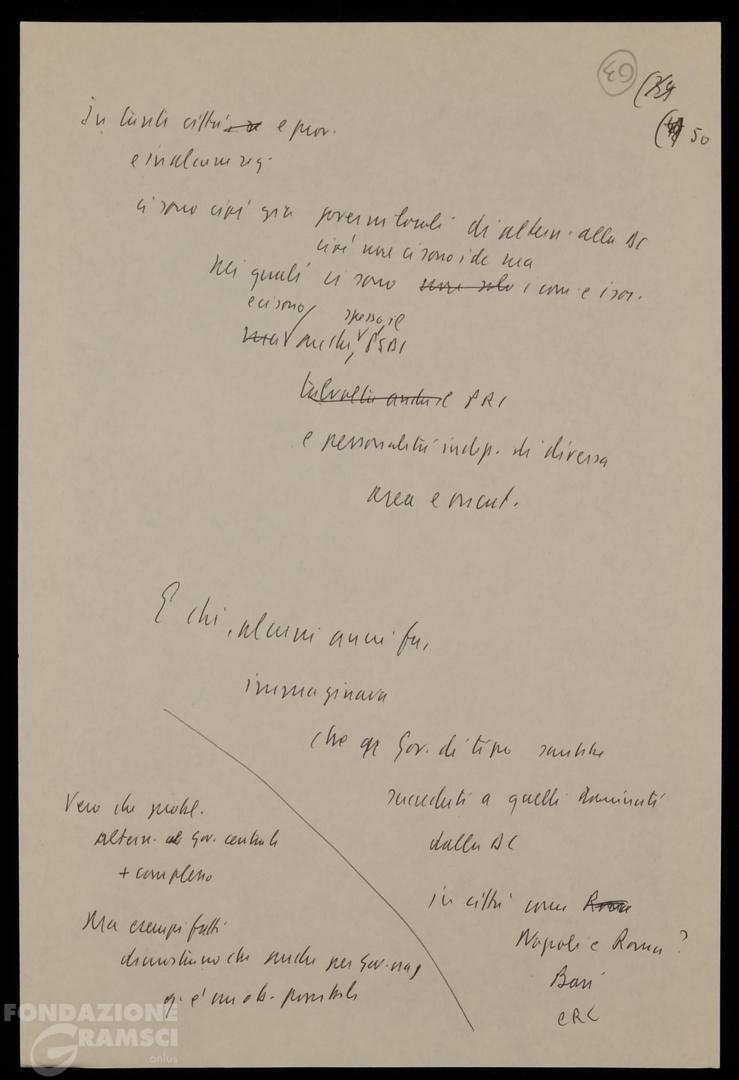 49
50
In tante città e prov.
e in alcune reg.
ci sono cioè già governi locali di altern. alla DC
cioè non ci sono i dc ma
Nei quali ci sono non solo i com. e i soc.
e ci sono spesso il
ma anche, PSDI
talvolta anche il PRI
e personalità indip. di diversa
area e orient.
E chi, alcuni anni fa,
immaginava
che Gov. di tipo
succeduti a quelli dominati
dalla DC
in città come Roma
Napoli e Roma?
Bari
ecc
Vero che probl.
altern. al Gov. centrale
+ complesso
Ma esempi fatti
dimostrano che anche per Gov. naz
è possibile
FONDAZIONE
GRAMSCI
onlus